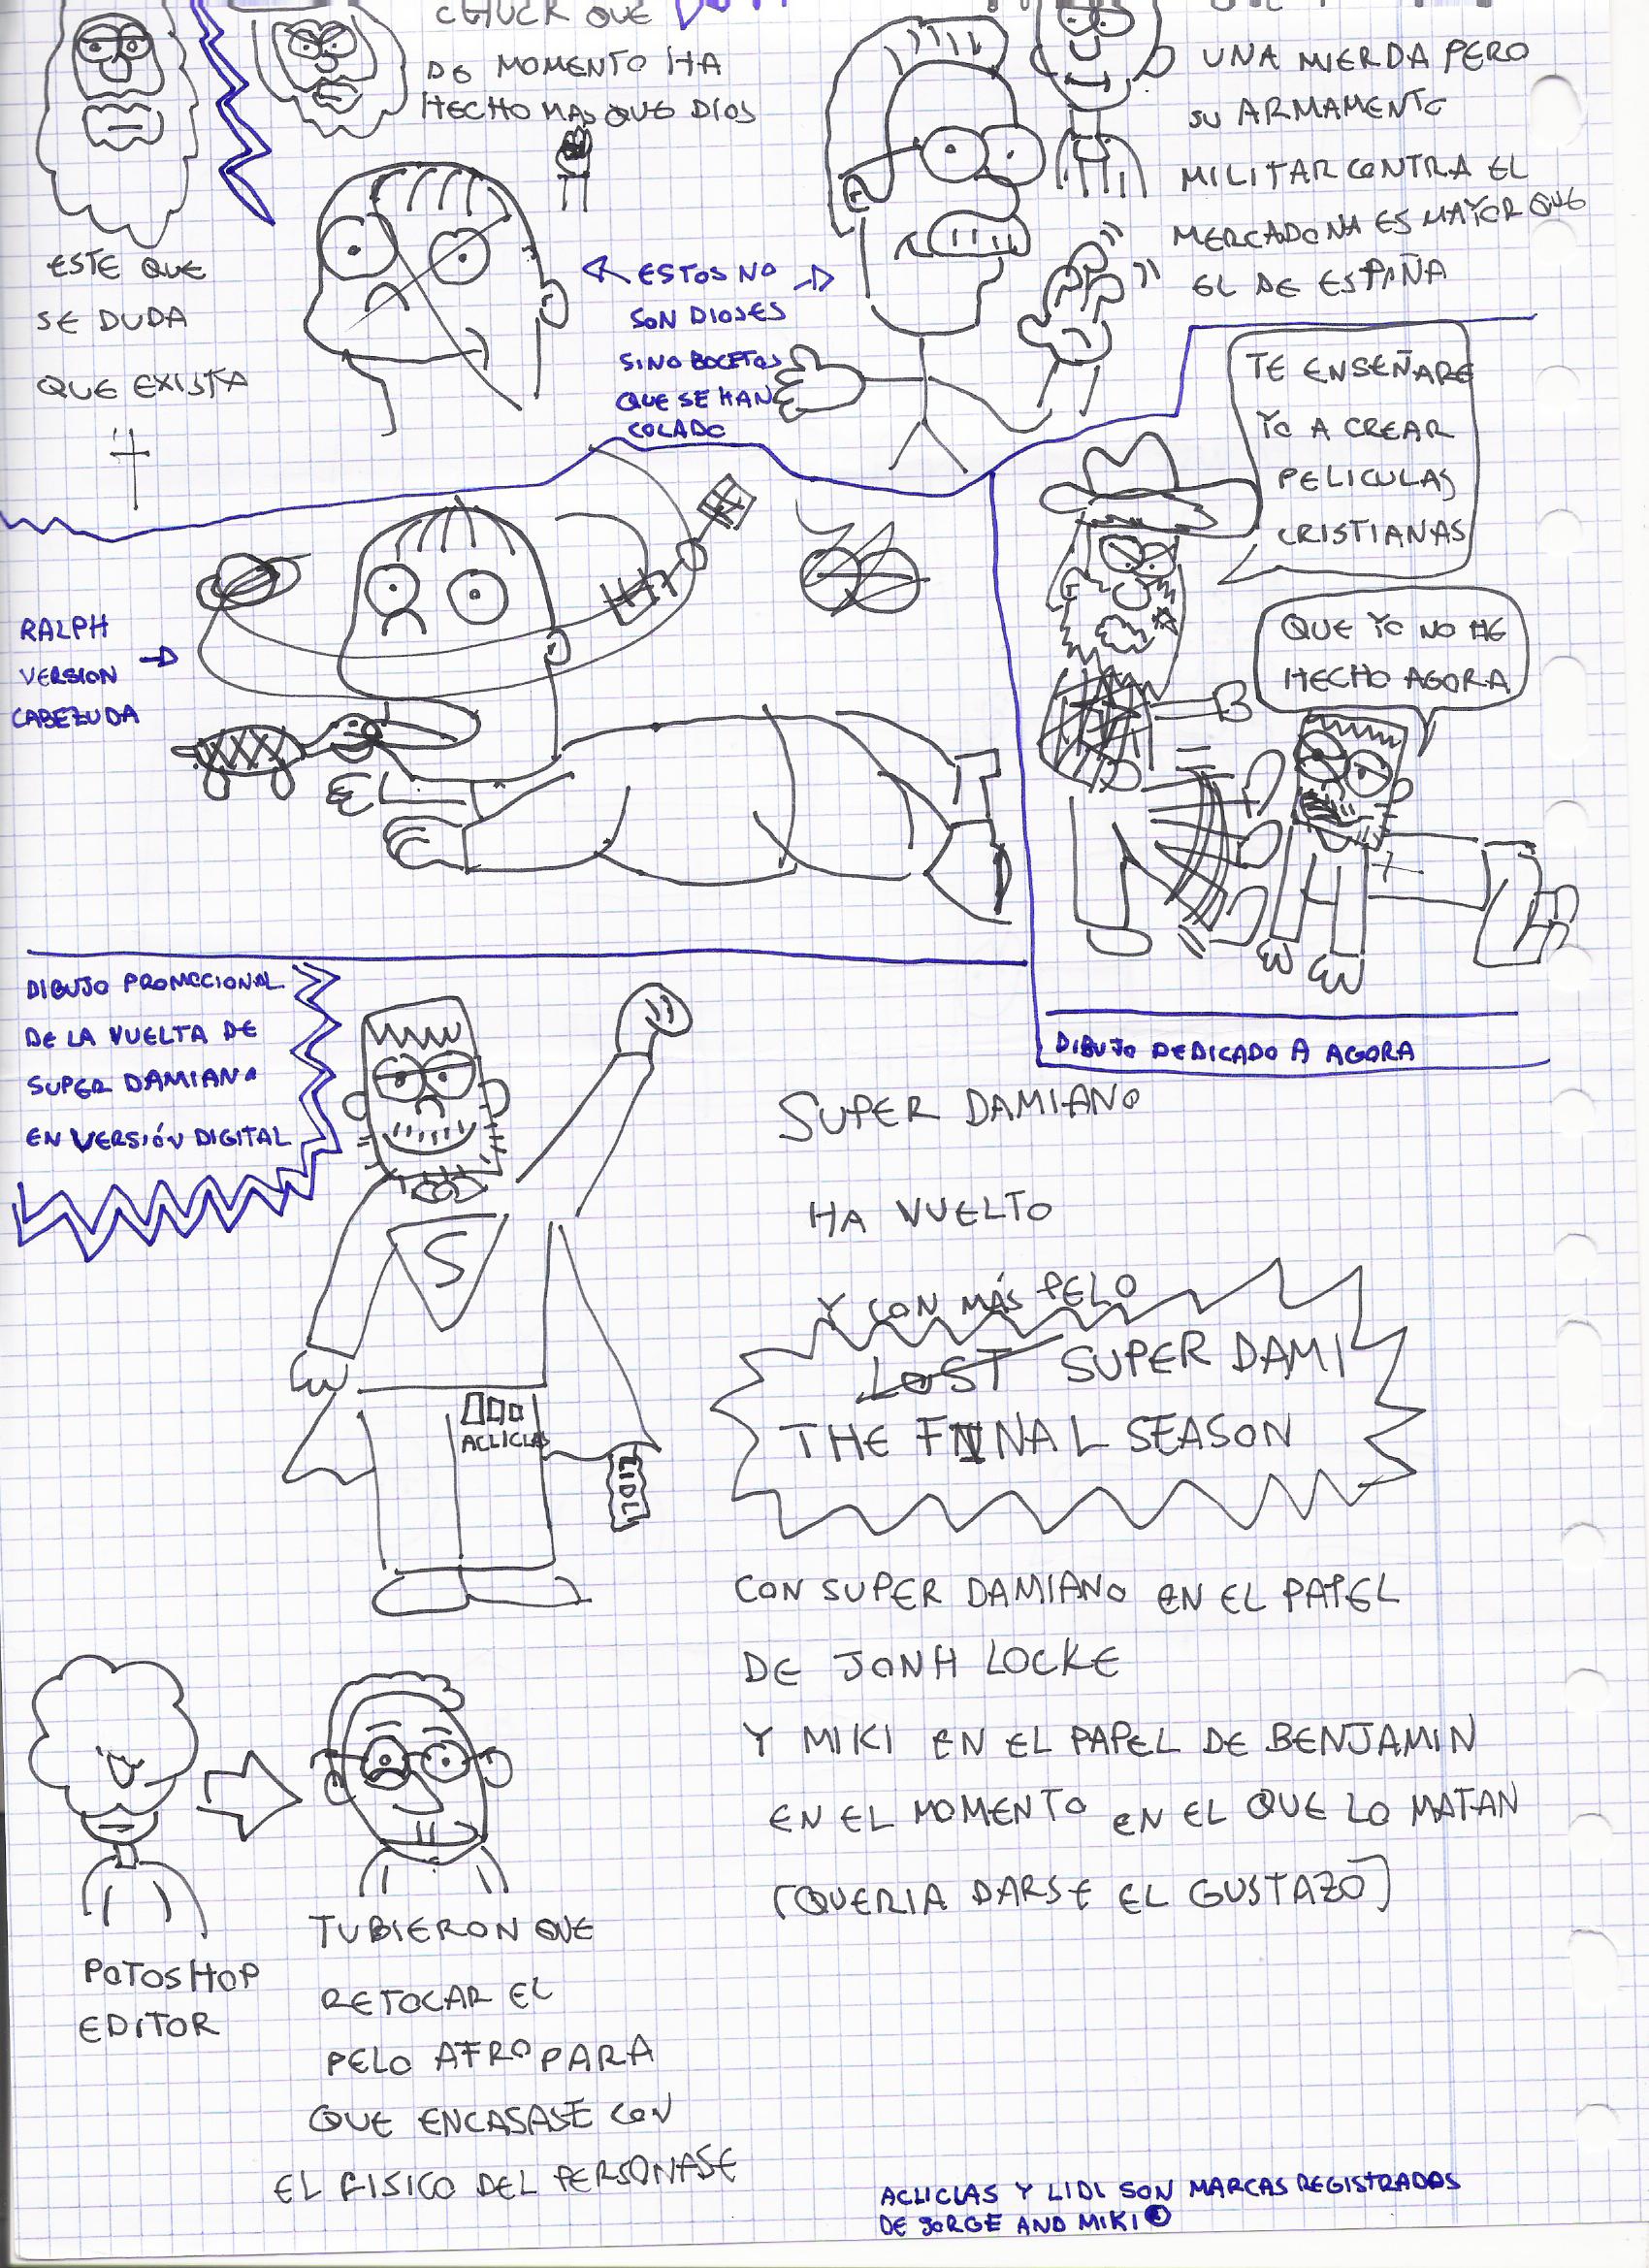 QUE
DE MOMENTO HA
HECHO MAS QUE DIOS
UNA MIERDA PERO
SU ARMAMENTO
MILITAR CONTRA EL
MERCADONA ES MAYOR QUE
EL DE ESPAÑA
ESTE QUE
SE DUDA
QUE EXISTA
ESTOS NO
SON DIOSES
SINO BOCETOS
QUE SE HAN
COLADO
TE ENSEÑARE
YO A CREAR
PELICULAS
CRISTIANAS
QUE YO NO HE
HECHO AGORA
RALPH
VERSION
CABEZUDA
DIBUJO DEDICADO A AGORA
DIBUJO PROMOCIONAL
DE LA VUELTA DE
SUPER DAMIANO
EN VERSIÓN DIGITAL
S
ACLICLAS
LIDL
SUPER DAMIANO
HA VUELTO
Y CON MÁS PELO
LOST SUPER DAMI
THE FINAL SEASON
CON SUPER DAMIANO EN EL PAPEL
DE JONH LOCKE
Y MIKI EN EL PAPEL DE BENJAMIN
EN EL MOMENTO EN EL QUE LO MATAN
(QUERIA DARSE EL GUSTAZO)
POTOSHOP
EDITOR
TUBIERON QUE
RETOCAR EL
PELO AFRO PARA
QUE ENCASASE CON
EL FISICO DEL PERSONASE
ACLICLAS Y LIDL SON MARCAS REGISTRADOS
DE JORGE AND MIKI ©